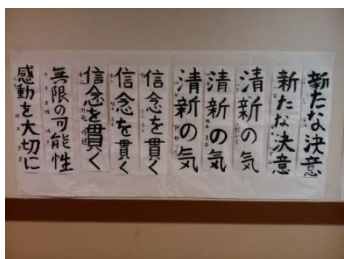 新たな決意
新たな決意
清新の気
清新の気
清新の気
信念を貫く
信念を貫く
信念を貫く
無限の可能性
感動を大切に